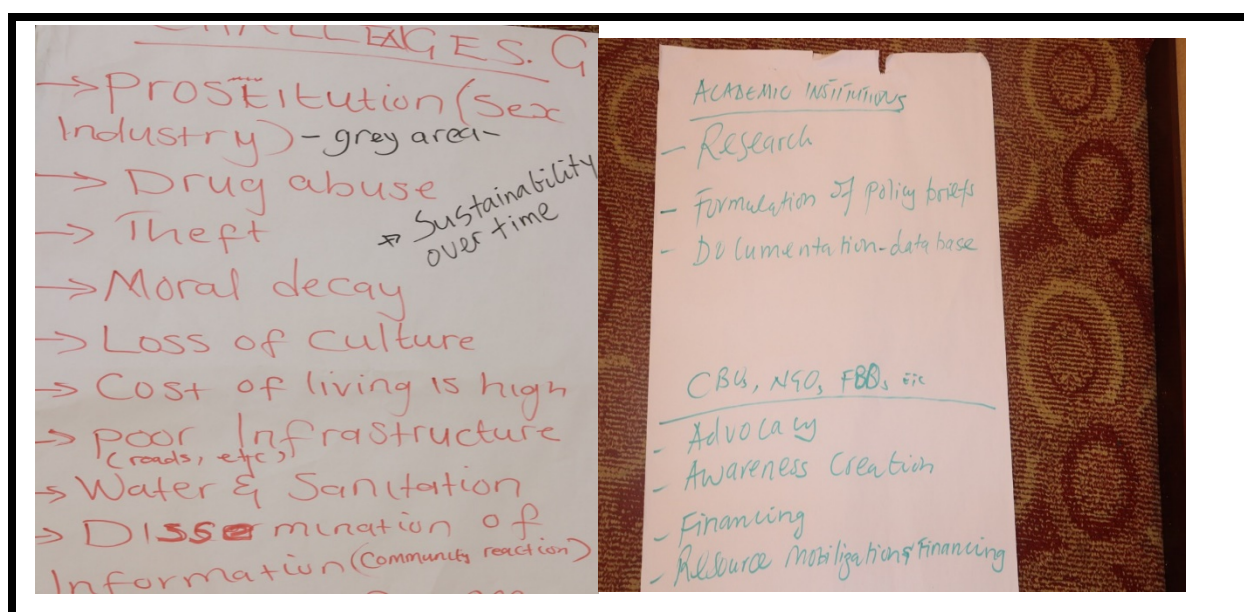 CHALLENGES. G
→ Prostitution (Sex
Industry) - grey area-
→ Drug abuse
* Sustainability
over time
→ Theft
→ Moral decay
→ Loss of culture
→ Cost of living is high
→ poor Infrastructure
(roads, etc)
→ Water & Sanitation
→ Dissemination of
Information (Community reaction)
ACADEMIC INSTITUTIONS
- Research
- Formulation of policy briefs
- Documentation-database
CBOs, NGO, FBOs, etc
- Advocacy
- Awareness Creation
- Financing
- Resource Mobilization & Financing